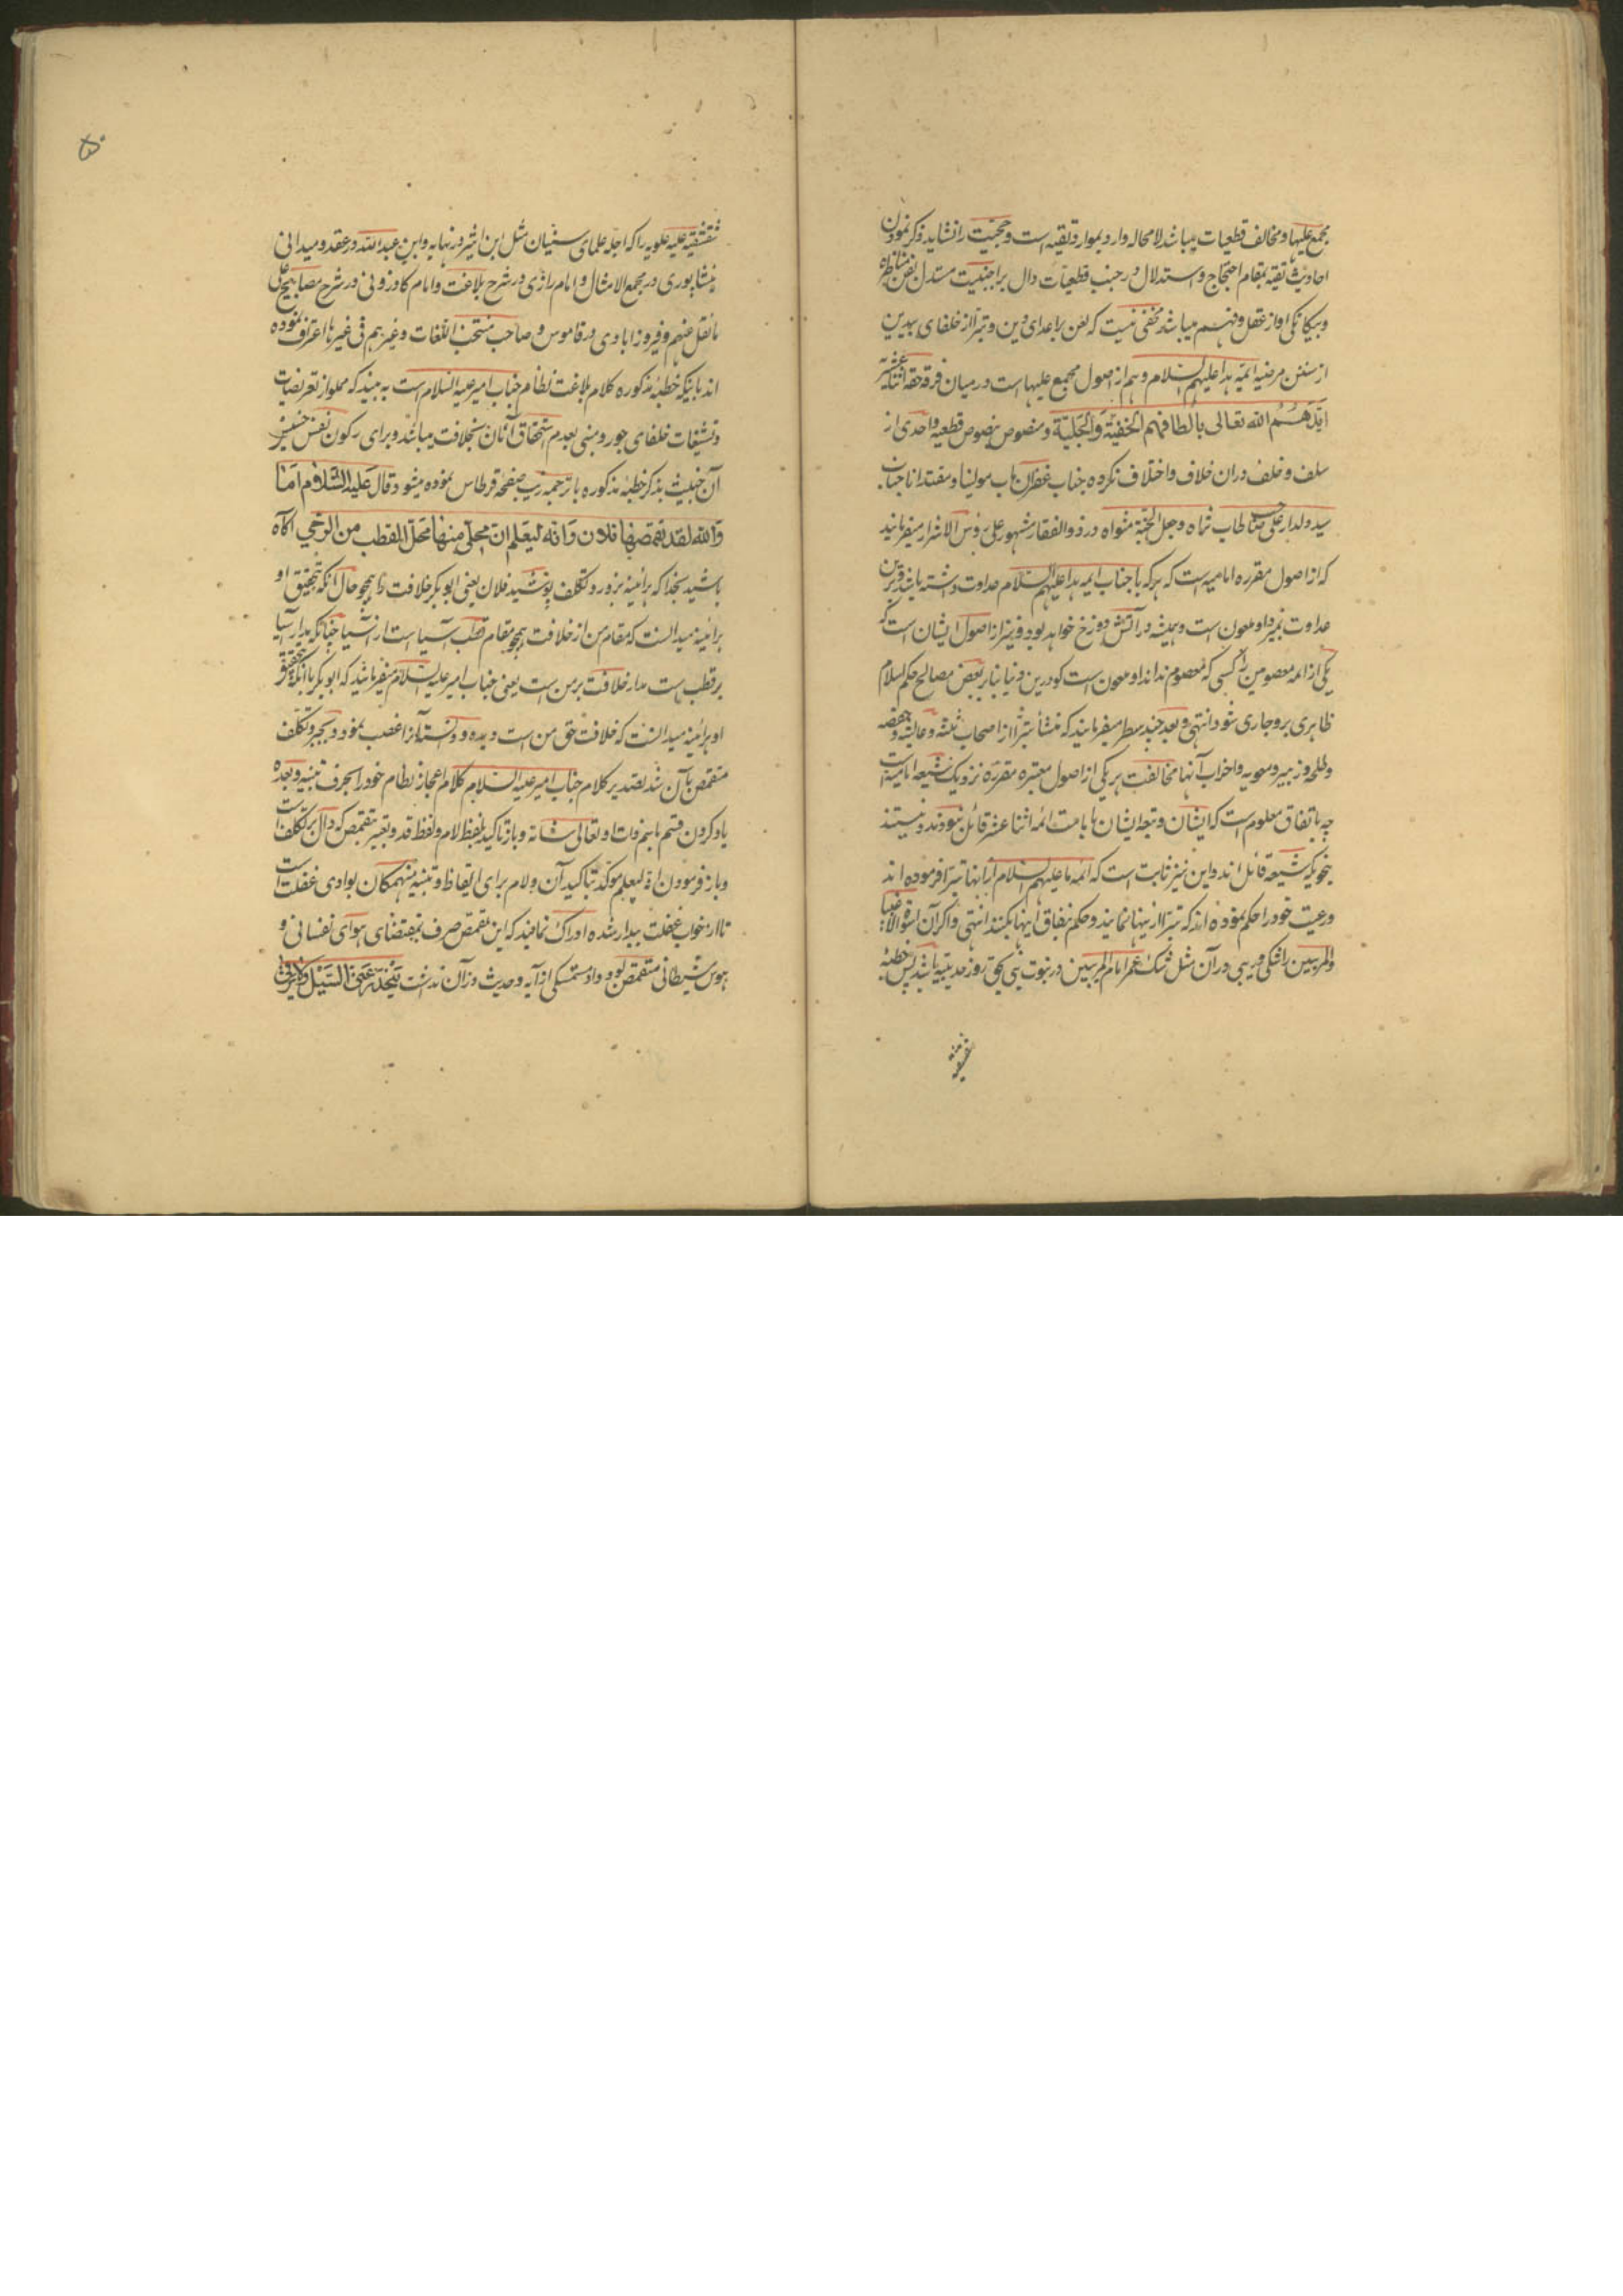 مجمع علیها و مخالف قطعیات میباشد لامحاله وارد بموارد تقیه است و حجیت را نشاید و ذکر نمودن
احادیث تقیه بمقام احتجاج و استدلال در جنب قطعیات دال بر اجنبیت مستدل بفن مناظره
و بیگانگی او از عقل و فهم میباشد مخفی نیست که لعن بر اعدای دین و تبرا از خلفای بیدین
از سنن مرضیه ائمه هدا علیهم السلام و هم از اصول مجمع علیها است در میان فرقه حقه اثنا عشریه
ایدهم الله تعالی بالطافهم الخفیة والجلیة و منصوص بنصوص قطعیه واحدی از
سلف و خلف دران خلاف و اختلاف نکرده جناب غفران ماب مولینا و مقتدانا جناب
سید دلدار علی طاب ثراه و جعل الجنة مثواه در ذوالفقار مشهور علی رؤس الاشرار میفرمایند
که از اصول مقرره امامیه است که هر که با جناب ایمه هدا علیهم السلام عداوت داشته باشد و برین
عداوت بمیرد او ملعون است و همیشه در آتش دوزخ خواهد بود و نیز از اصول ایشان است که
یکی از ائمه معصومین را کسی که معصوم نداند او ملعون است کو درین دنیا بنابر بعض مصالح حکم اسلام
ظاهری برو جاری شود انتهی و بعد چند سطر میفرمایند که منشأ تبرا از اصحاب ثلثه و عایشه و حفصه
و طلحه و زبیر و معویه و احزاب آنها مخالفت هر یکی از اصول معتبره مقرره نزدیک شیعه امامیه است
چه باتفاق معلوم است که ایشان و تبعه ایشان بامامت ائمه اثنا عشر قائل نبودند و نیستند
بنحویکه شیعه قائل اند و این نیز ثابت است که ائمه ما علیهم السلام ازینها تبرا فرموده اند
و رعیت خود را حکم نموده اند که تبرا ازینها نمایند و حکم بنفاق اینها بکنند انتهی و اگر آن
والمریبین را شکی و ریبی در آن مثل شک عمر امام المریبین در نبوت نبی بحق روز حدیبیه باشد پس خطبه
شقشقیه
شقشقیه علیه علویه را که اجله علمای سنیان مثل ابن اثیر در نهایه و ابن عبدالله در عقد و میدانی
نیشاپوری در مجمع الامثال و امام رازی در شرح بلاغت و امام کاوزونی در شرح مصابیح علی
ما نقل عنهم و فیروزابادی در قاموس و صاحب منتخب اللغات و غیرهم فی غیرها اعتراف نموده
اند باینکه خطبه مذکوره کلام بلاغت نظام جناب امیر علیه السلام است به بیند که مملو از تعریضات
و تشنیعات خلفای جور و مبنی بعدم استحقاق آنان بخلافت میباشد و برای رکون نفس
آن خبیث بذکر خطبه مذکوره با ترجمه زیب صفحه قرطاس نموده میشود قال علیه السلام اما
والله لقد تقمصها فلان وانه لیعلم ان محلی منها محل القطب من الرحی آگاه
باشید بخدا که هرآئینه بزور و تکلف پوشید فلان یعنی ابوبکر خلافت را همچو حال آنکه بتحقیق او
هرآئینه میدانست که مقام من از خلافت همچو مقام قطب آسیا است از آسیا چنانکه مدار آسیا
بر قطب است مدار خلافت بر من است یعنی جناب امیر علیه السلام میفرماید که ابوبکر با آنکه بتحقیق
او هرآئینه میدانست که خلافت حق من است دیده و دانسته آنرا غصب نمود و بجبر و تکلف
متقمص بآن شد تصدیر کلام جناب امیر علیه السلام کلام اعجاز نظام خود را بحرف تنبیه و بعده
یاد کردن قسم باسم ذات او تعالی شانه و باز تاکید بلفظ لام و لفظ قد و تعبیر بتقمص که دال بر تکلف است
و باز فرمودن انه لیعلم موکد بتاکید آن و لام برای ایقاظ و تنبیه منهمکان بوادی غفلت است
تا از خواب غفلت بیدار شده ادراک نمایند که این تقمص صرف بمقتضای هوای نفسانی و
هوس شیطانی متقمص بود و او متمسکی از آیه و حدیث دران نداشت ینحدر عنی السیل ولا یرقی